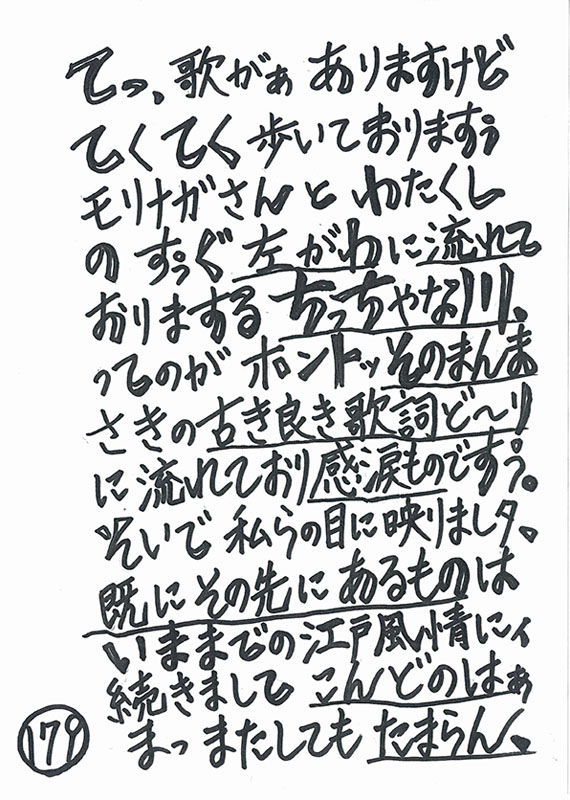 てっ、歌がぁ ありますけど
てくてく 歩いておりますぅ
モリナガさん と わたくし
の すぅぐ 左がわに流れて
おりまする ちっちゃな川、
ってのが ホントッ そのまんま
さきの 古き良き歌詞ど〜り
に流れており 感涙ものですぅ。
そいで 私らの目に映りましタ、
既に その先に あるものは
いままでの江戸風情にィ
続きまして こんどのはぁ
まっ またしても たまらん、
179